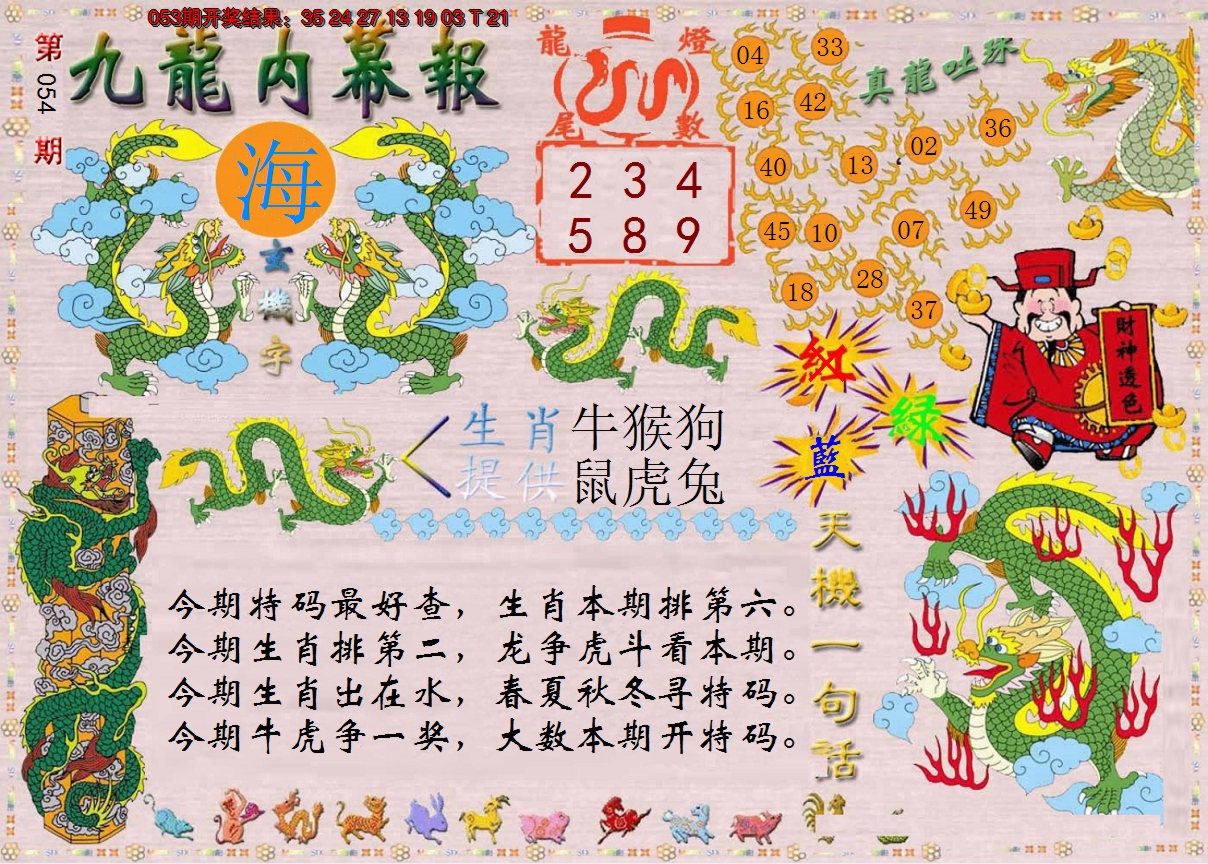 053期开奖结果：35 24 27 13 19 03 T 21
第
054
期
九龍内幕報
海
玄
機
字
龍燈
尾數
2 3 4
5 8 9
真龍吐珠
04 33
16 42
40 13 02 36
45 10 07 49
18 28 37
財神透色
紅
綠
藍
生肖 牛猴狗
提供 鼠虎兔
天機一句話
今期特码最好查，生肖本期排第六。
今期生肖排第二，龙争虎斗看本期。
今期生肖出在水，春夏秋冬寻特码。
今期牛虎争一奖，大数本期开特码。